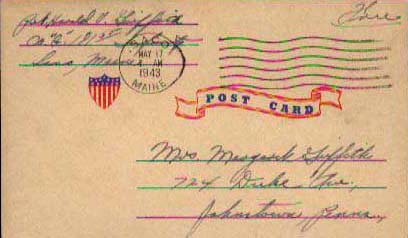 Pvt Harold V. Griffith
Co "C" 181st
Maine
MAY 17
AM
1943
MAINE
Free
POST CARD
Mrs Margaret Griffith
Duke Ave,
Johnstown, Penna.,